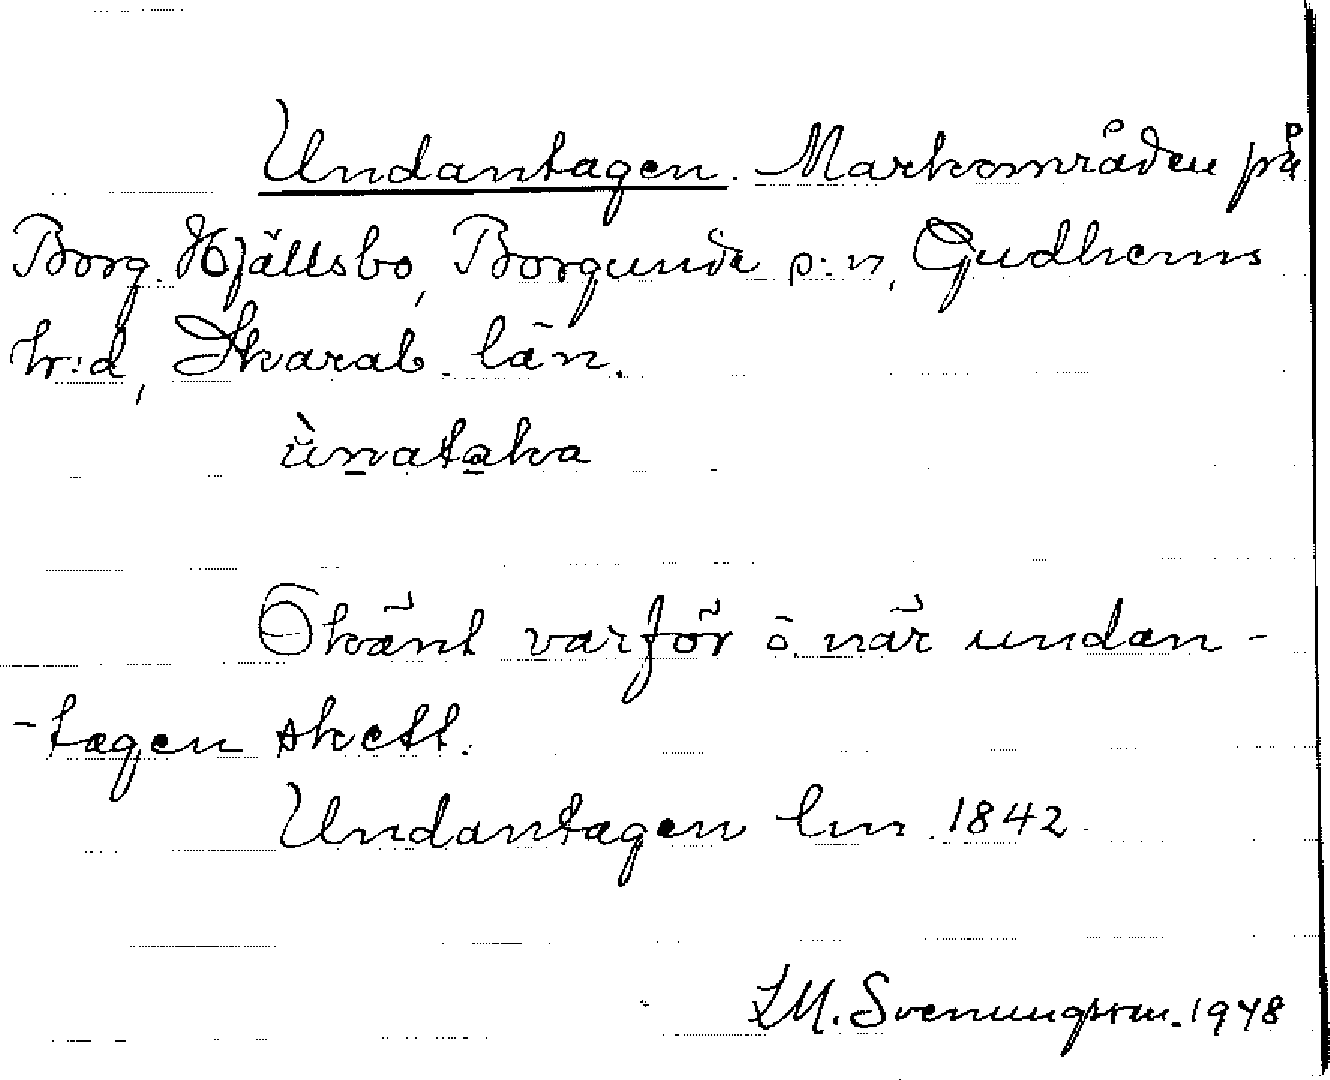 Undantagen. Markområden på
Borg. Hjällsbo, Borgunda s:n, Gudhems
h:d, Skarab. län.
ùnataka
Okänt varför o. när undan-
-tagen skett.
Undantagen lm 1842
L.M. Svenungsson. 1948